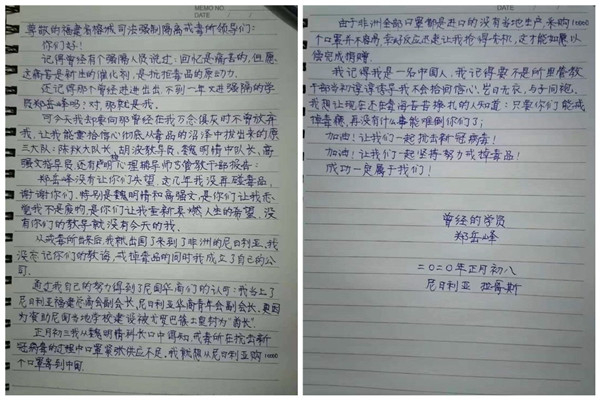 MEMO NO.
DATE / /
尊敬的福建省榕城司法强制隔离戒毒所领导们:
你们好!
记得曾经有个强隔人员说过:回忆是痛苦的,但愿
这痛苦是新生的催化剂,是抗拒毒品的原动力.
还记得那个曾经进进出出,不到一年又进强隔的学
员郑岳峰吗?对,那就是我。
可今天我却要向那曾经在我万念俱灰时不曾放弃
我,让我能重拾信心彻底从毒品的沼泽中拔出来的原
三大队:陈 大队长,胡波教导员,魏明精中队长,高
强文指导员还有 明心理辅导师与管教干部报告:
郑岳峰没有让你们失望,这几年我没再碰毒品,
谢谢你们,特别是魏明精和高强文,是你们让我感
觉我不是废物,是你们让我重新燃人生的希望,没
有你们的教导就没有今天的我。
从戒毒所出来后我就出国了来到了非洲的尼日利亚,我
没忘记你们的教诲,戒掉毒品的同时我成立了自己的公
司.
通过我自己的努力得到了尼国华商们的认可:我当上了
尼日利亚福建总商会副会长,尼日利亚华商青年会副会长,更因
为资助尼国当地学校建设被尤安巴德土皇封为“酋长”.
正月初三我从魏明精科长口中得知,戒毒所在抗击新
冠病毒的过程中口罩紧张供应不足,我就想从尼日利亚购10000
个口罩寄到中国.
DATE / /
由于非洲全部口罩都是进口的没有当地生产,采购10000
个口罩并不容易,幸好反应迅速让我抢得先机,这才能如愿以
偿完成捐赠.
我记得我是一名中国人,我记得要不是所里管教
干部当初谆谆诱导我不会拾回信心,岂曰无衣,与子同袍,
我想让现在还在毒海苦苦挣扎的人知道:只要你们能戒
掉毒瘾,再没有什么事能难倒你们了;
加油!让我们一起抗击新冠病毒!
加油!让我们一起坚持努力戒掉毒品!
成功一定属于我们!
曾经的学员
郑岳峰
二〇二〇年正月初八
尼日利亚 拉哥斯